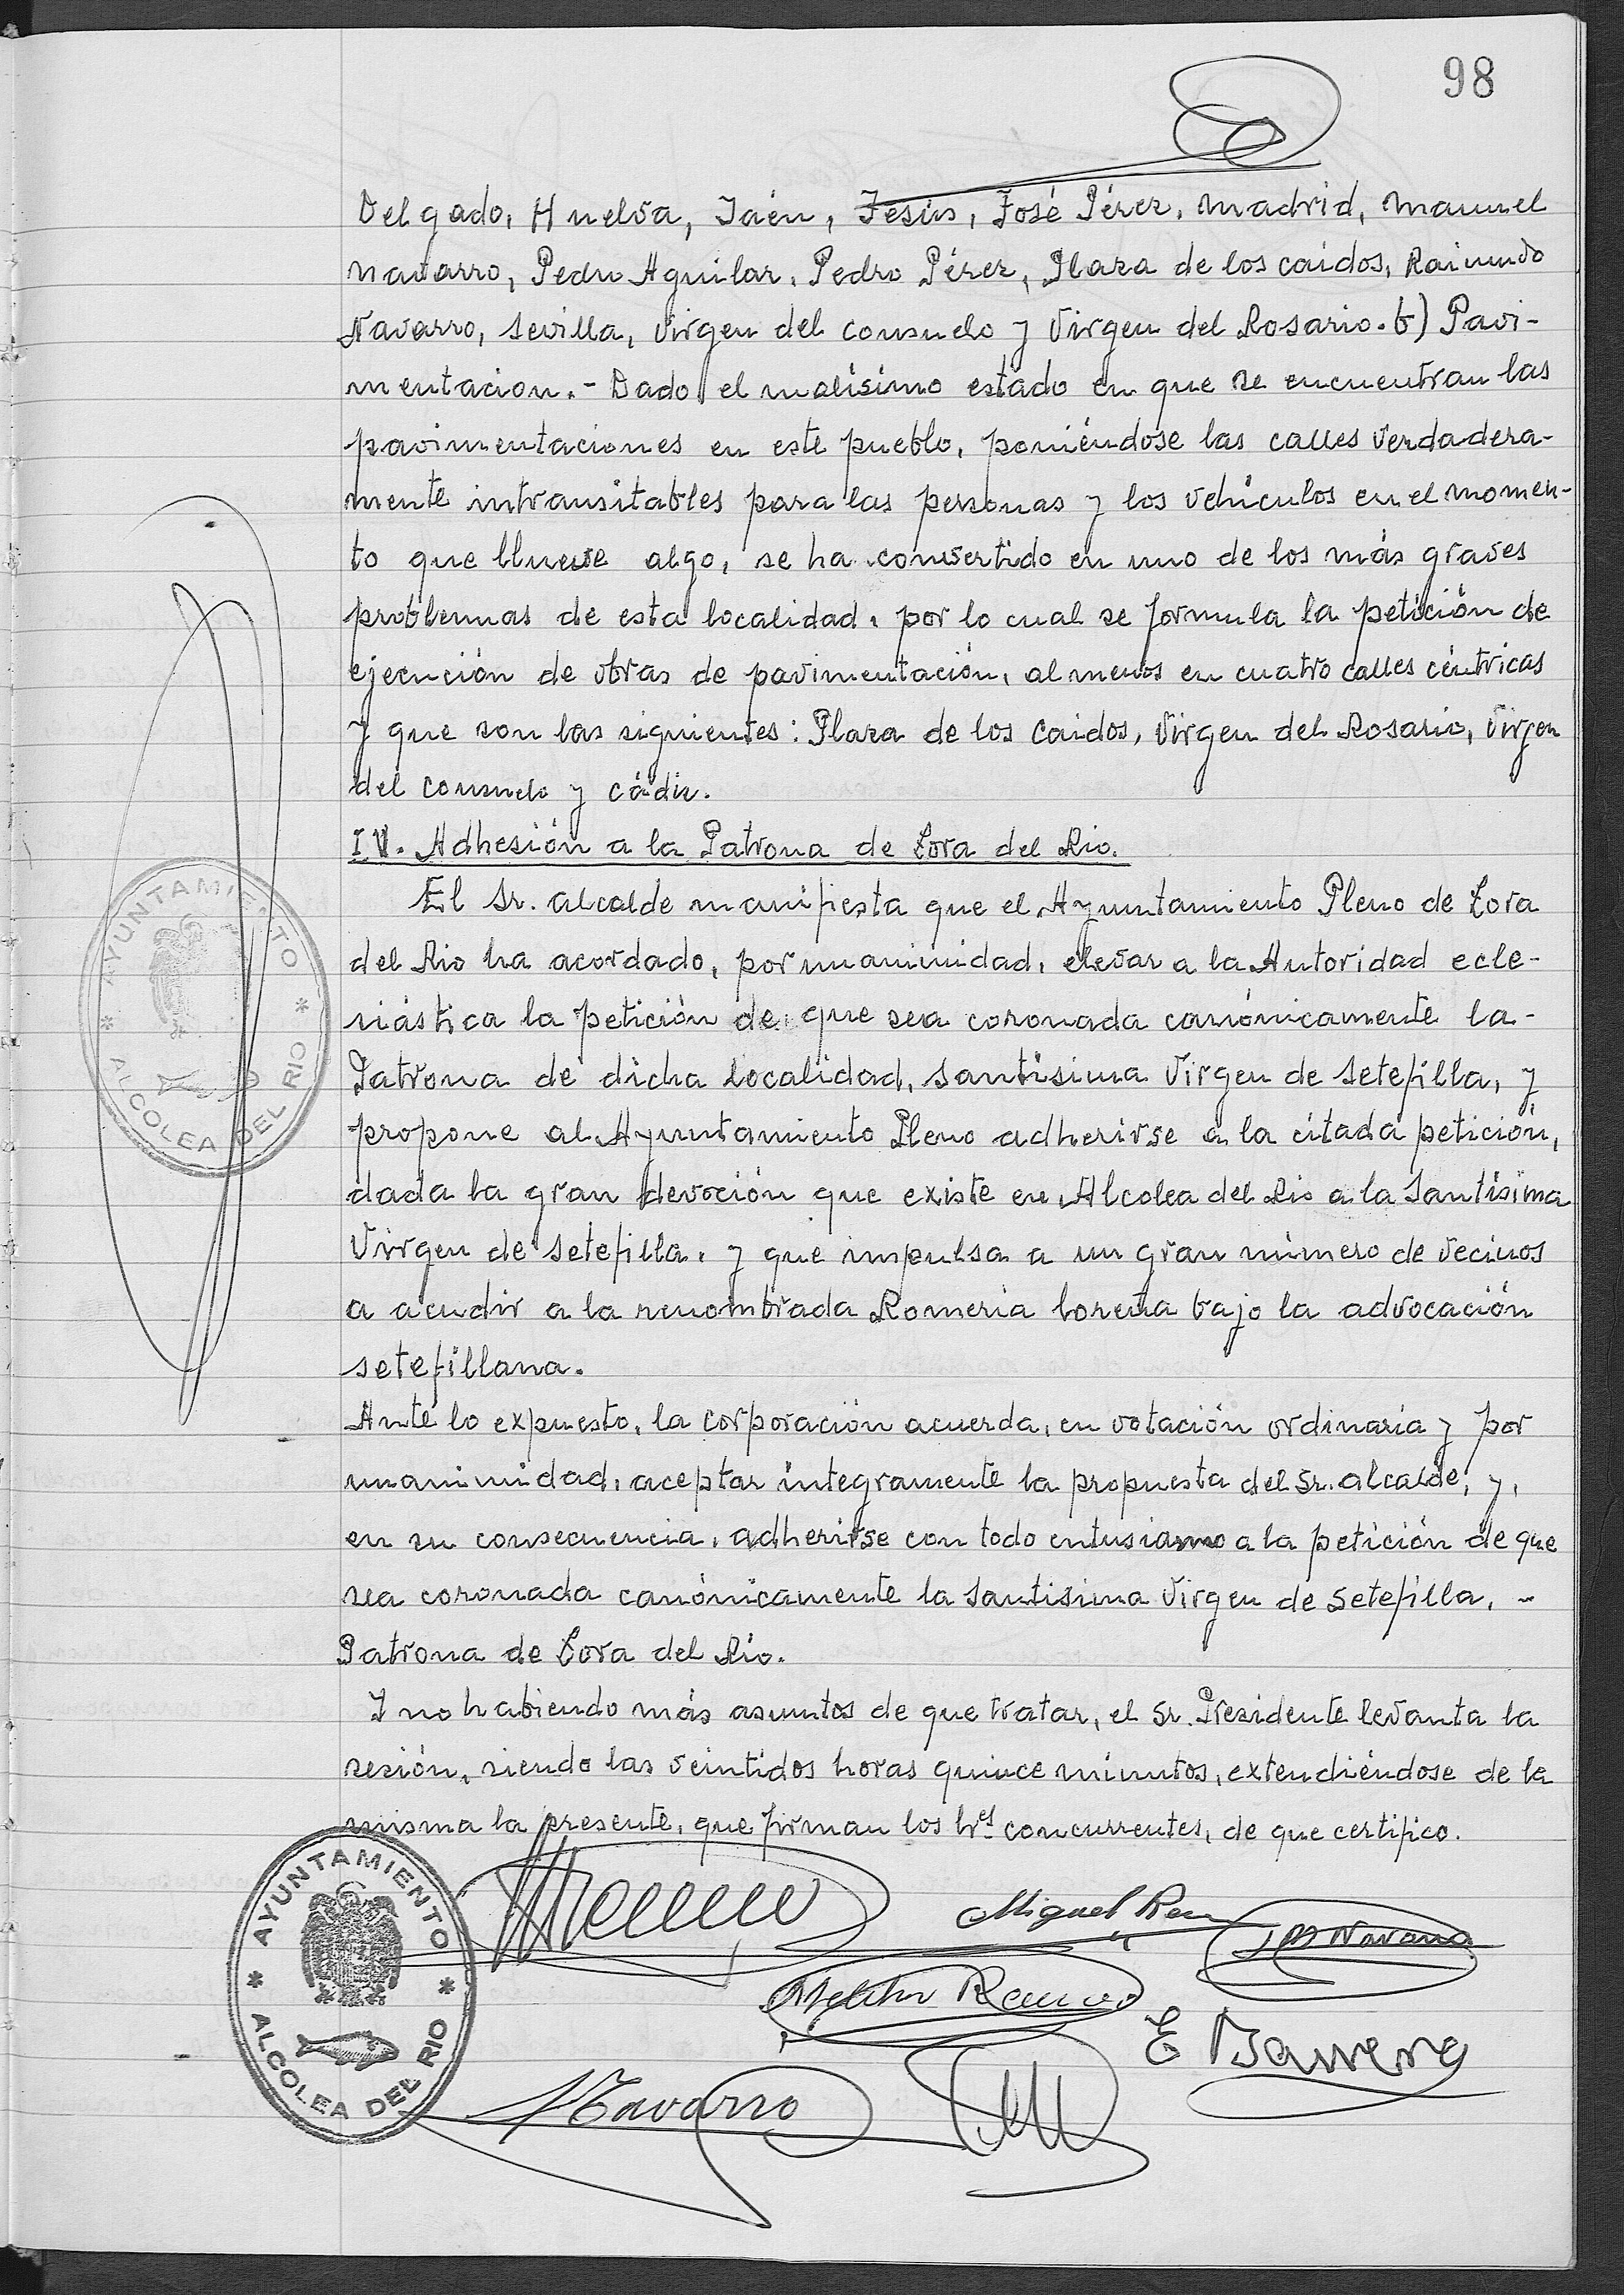 98
Delgado, Huelva, Jaén, Jesús, José Pérez, Madrid, Manuel
Navarro, Pedro Aguilar, Pedro Pérez, Plaza de los Caidos, Raimundo
Navarro, Sevilla, Virgen del Consuelo y Virgen del Rosario. b) Pavi-
mentacion.- Dado el malísimo estado en que se encuentran las
pavimentaciones en este pueblo, poniéndose las calles verdadera-
mente intransitables para las personas y los vehículos en el momen-
to que llueve algo, se ha convertido en uno de los más graves
problemas de esta localidad, por lo cual se formula la petición de
ejecución de obras de pavimentación, al menos en cuatro calles céntricas
y que son las siguientes: Plaza de los Caidos, Virgen del Rosario, Virgen
del Consuelo y Cádiz.
IV. Adhesión a la Patrona de Lora del Rio.
El Sr. Alcalde manifiesta que el Ayuntamiento Pleno de Lora
del Rio ha acordado, por unanimidad, elevar a la Autoridad ecle-
siástica la petición de que sea coronada canónicamente la-
Patrona de dicha localidad, Santísima Virgen de Setefilla, y
propone al Ayuntamiento Pleno adherirse a la citada petición,
dada la gran devoción que existe en Alcolea del Rio a la Santísima
Virgen de Setefilla, y que impulsa a un gran número de vecinos
a acudir a la renombrada Romeria loreña bajo la advocación
setefillana.
Ante lo expuesto, la Corporación acuerda, en votación ordinaria y por
unanimidad, aceptar íntegramente la propuesta del Sr. Alcalde, y,
en su consecuencia, adherirse con todo entusiasmo a la petición de que
sea coronada canónicamente la Santísima Virgen de Setefilla, -
Patrona de Lora del Rio.
Y no habiendo más asuntos de que tratar, el Sr. Presidente levanta la
sesión, siendo las veintidos horas quince minutos, extendiéndose de la
misma la presente, que firman los Sres. concurrentes, de que certifico.
AYUNTAMIENTO * ALCOLEA DEL RIO *
AYUNTAMIENTO * ALCOLEA DEL RIO *
Miguel
Navarro
E Barrera
Navarro